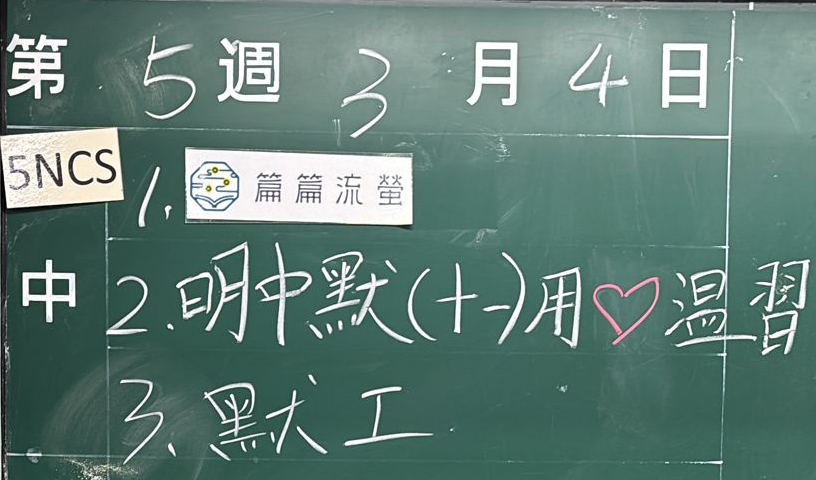 第 5 週 3 月 4 日
5NCS
1. 篇篇流螢
中 2. 明中默(十一)用♡溫習
3. 默工